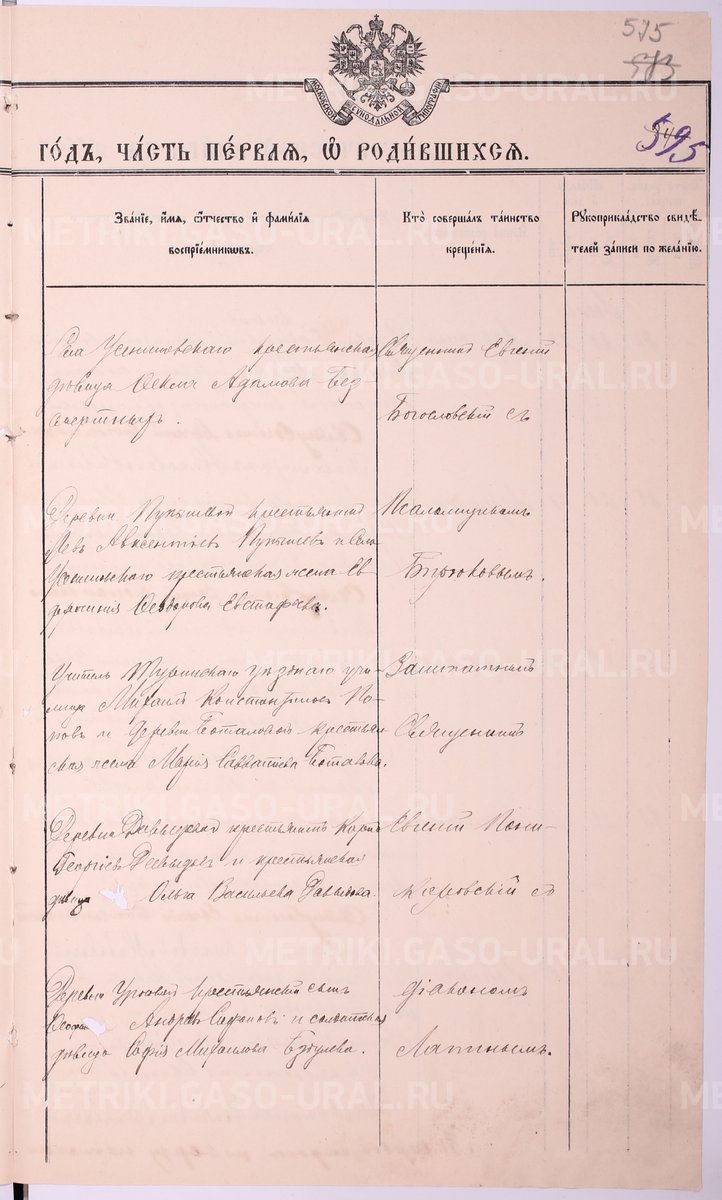 575
МОСКОВСКОЙ СУНОДАЛЬНОЙ ТИПОГРАФІИ
595
ГО́ДЪ, ЧА́СТЬ ПЕ́РВАЯ, Ѡ҆ РОДИ́ВШИХСЯ.
Зва́нїе, и҆́мя, ѻ҆́тчество и҆ фами́лїя
воспрїе́мниковъ.
Кто̀ соверша́лъ та́инство
креще́нїя.
Рꙋкоприкла́дство свидѣ́-
телей за́писи по жела́нїю.
Села Усениновскаго крестьянская
дѣвица Адамова Без-
смертныхъ.
Священникъ Евгеній
Богословскій съ
Деревни крестьянинъ
Левъ Авксентьевъ и села
Усениновскаго крестьянская жена Ев
фросинія Ѳеодорова Евстафьева.
Псаломщикомъ
Бирюковымъ.
Учитель Туринскаго уѣзднаго учи-
лища Михаилъ Константиновъ По-
повъ и деревни Боталовой крестьян
ская жена Марія Савватіева Боталова.
Заштатный
Священникъ
Деревни Давыдовой крестьянинъ
Георгіевъ Давыдовъ и крестьянская
дѣвица Ольга Васильева Давыдова.
Евгеній Пони-
маровскій съ
Деревни крестьянскій сынъ
Андреевъ Сафоновъ и солдатская
дѣвица Софія Михаилова
діакономъ
Лапинымъ.
METRIKI.GASO-URAL.RU